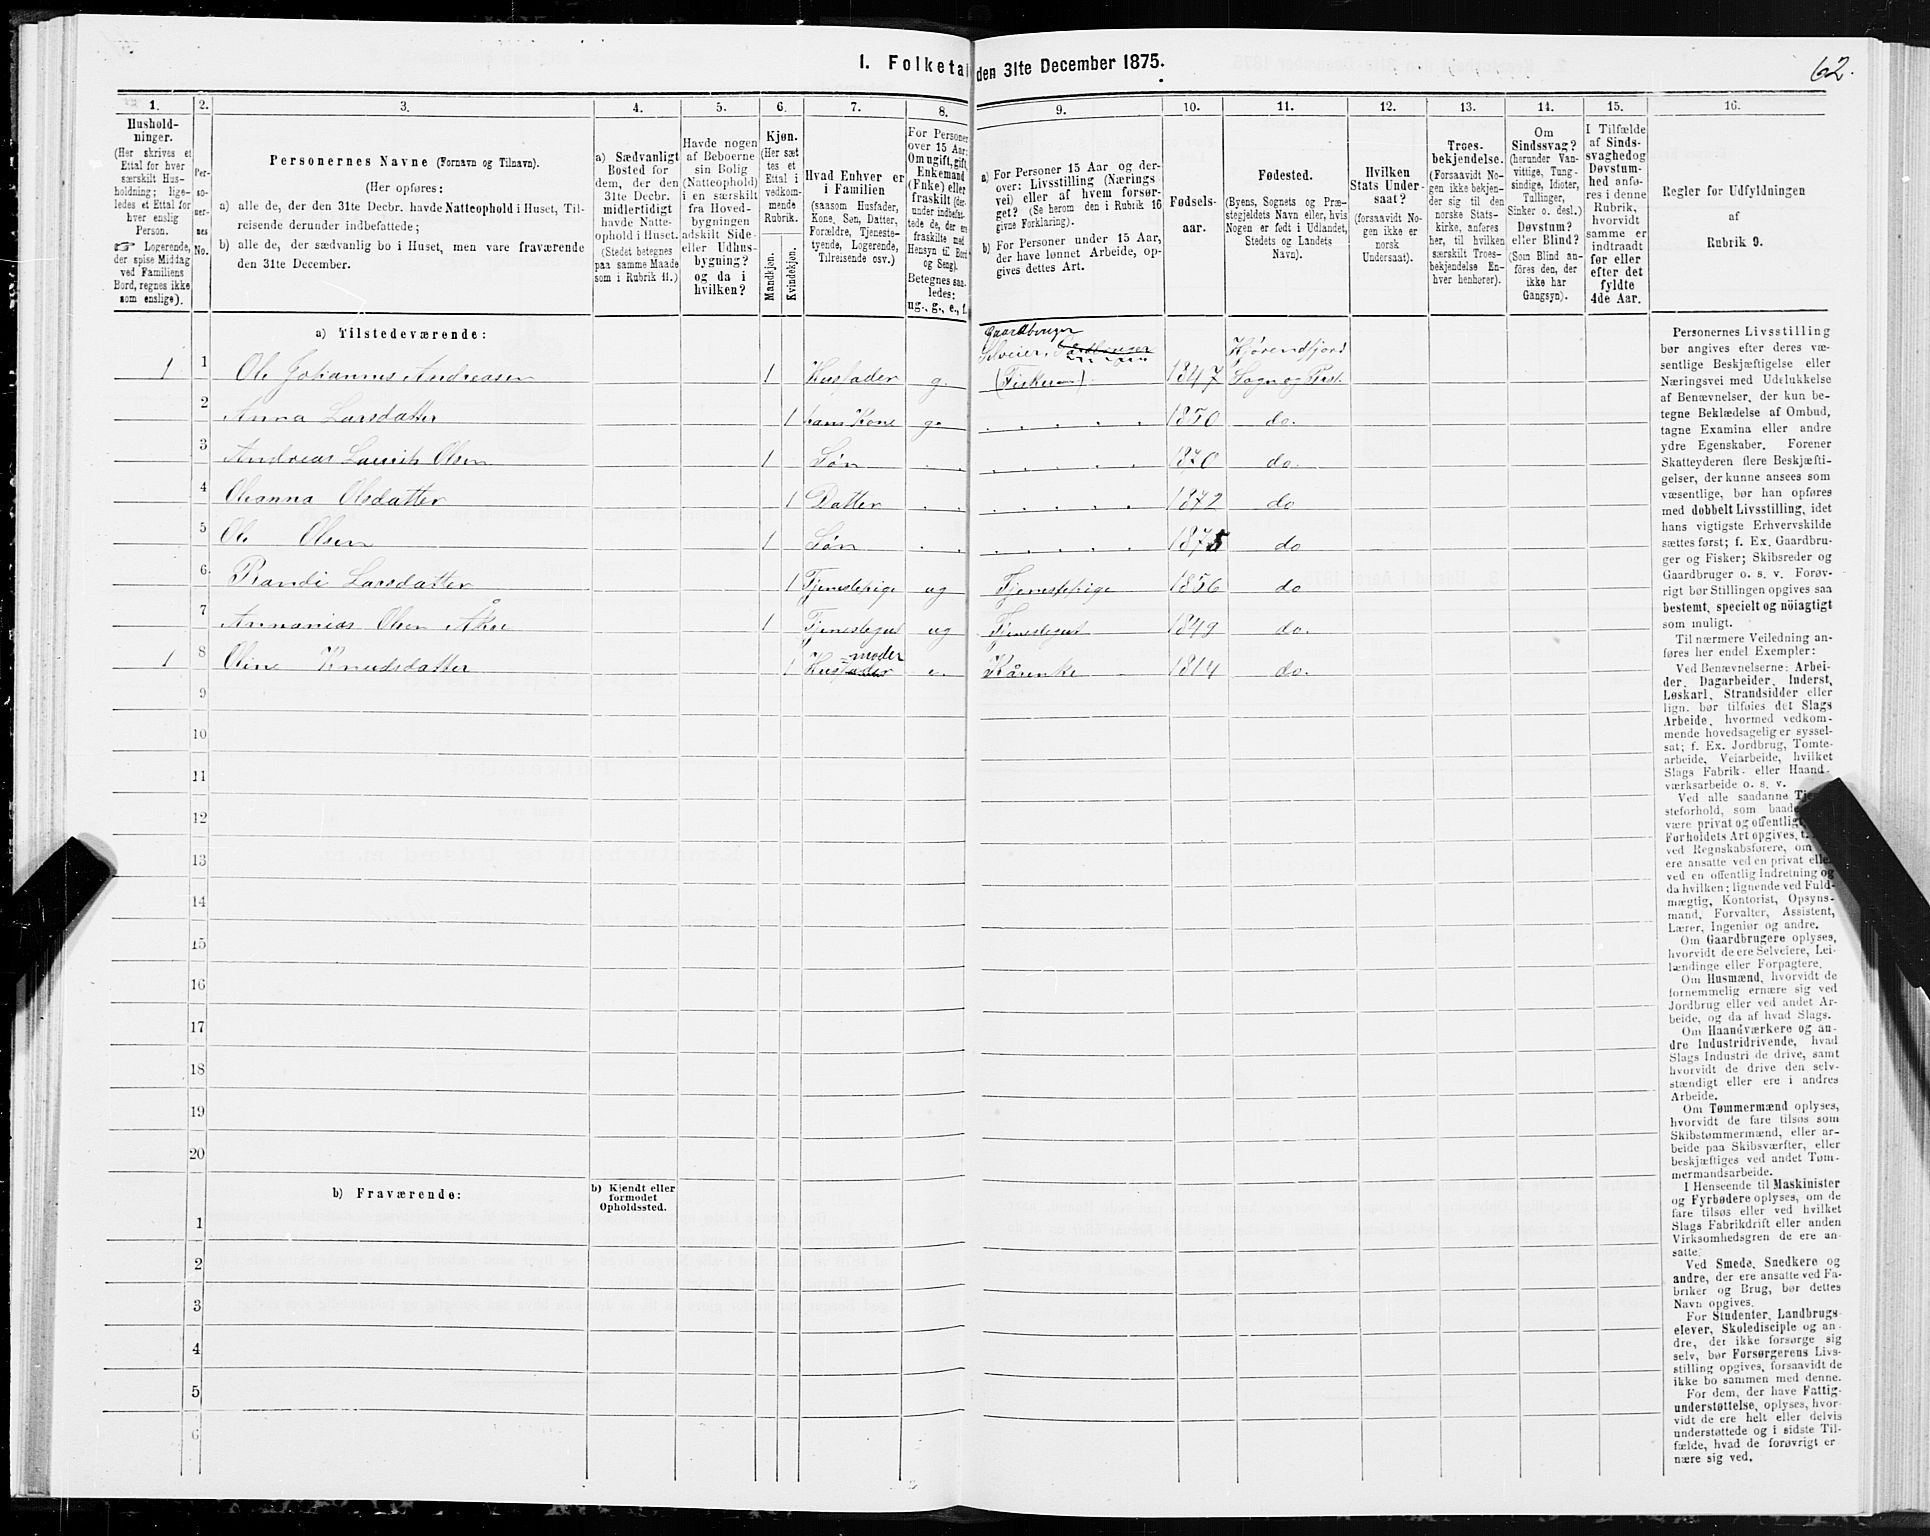 62.
1. Folketæl
den 31te December 1875.
1. 2. 3. 4. 5. 6. 7. 8. 9. 10. 11. 12. 13. 14. 15. 16.
Hushold-
ninger.
(Her skrives et
Ettal for hver
særskilt Hus-
holdning; lige-
ledes et Ettal for
hver enslig
Person.
☞ Logerende,
der spise Middag
ved Familiens
Bord, regnes ikke
som enslige).
Per-
so-
ner-
nes
No.
Personernes Navne (Fornavn og Tilnavn).
(Her opføres:
a) alle de, der den 31te Decbr. havde Natteophold i Huset, Til-
reisende derunder indbefattede;
b) alle de, der sædvanlig bo i Huset, men vare fraværende
den 31te December.
a) Sædvanligt
Bosted for
dem, der den
31te Decbr.
midlertidigt
havde Natte-
ophold i Huset.
(Stedet betegnes
paa samme Maade
som i Rubrik 11.)
Havde nogen
af Beboerne
sin Bolig
(Natteophold)
i en særskilt
fra Hoved-
bygningen
adskilt Side-
eller Udhus-
bygning?
og da i
hvilken?
Kjøn.
(Her sæt
tes et
Ettal i
vedkom-
mende
Rubrik.
Mandkjøn.
Kvindekjøn.
Hvad Enhver er
i Familien
(saasom Husfader,
Kone, Søn, Datter,
Forældre, Tjeneste-
tyende, Logerende,
Tilreisende osv.)
For Personer
over 15 Aar:
Om ugift, gift,
Enkemand
(Enke) eller
fraskilt (der-
under indbefat-
tede de, der ere
fraskilte med
Hensyn til Bord
og Seng).
Betegnes saa-
ledes:
ug., g., e., f.
a) For Personer 15 Aar og der-
over: Livsstilling (Nærings
vei) eller af hvem forsør-
get? (Se herom den i Rubrik 16
givne Forklaring).
b) For Personer under 15 Aar,
der have lønnet Arbeide, op-
gives dettes Art.
Fødsels-
aar.
Fødested.
(Byens, Sognets og Præ-
stegjeldets Navn eller, hvis
Nogen er født i Udlandet,
Stedets og Landets
Navn).
Hvilken
Stats Under-
saat?
(forsaavidt No-
gen ikke er
norsk
Undersaat).
Troes-
bekjendelse.
(Forsaavidt No-
gen ikke bekjen-
der sig til den
norske Stats-
kirke, anføres
her, til hvilken
særskilt Troes-
bekjendelse En-
hver henhører).
Om
Sindssvag?
(herunder Van-
vittige, Tung-
sindige, Idioter,
Tallinger,
Sinker o. desl.)
Døvstum?
eller Blind?
(Som Blind an-
føres den, der
ikke har
Gangsyn).
I Tilfælde
af Sinds-
svaghed og
Døvstum-
hed anfø-
res i denne
Rubrik,
hvorvidt
samme er
indtraadt
før eller
efter det
fyldte
4de Aar.
Regler for Udfyldningen
af
Rubrik 9.
a) Tilstedeværende:
Gaardbruger
Selveier, Jordbruger Hjørendfjord
1 1 Ole Johannes Andreasen 1 Husfader g. (Fisker) 1847 Sogn og Præst.
2 Anna Larsdatter 1 hans Kone g. 1850 do.
3 Andreas Laurits Olsen 1 Søn 1870 do.
4 Oleanna Olsdatter 1 Datter 1872 do
5 Ole Olsen 1 Søn 1875 do
6. Randi Larsdatter 1 Tjenestepige ug Tjenestepige 1856 do
7 Annanias Olsen Åkre 1 Tjenestegut ug Tjenestegut 1849 do.
moder
1 8 Oline Knudsdatter 1 Husfader e. Kårenke 1814 do.
9
10
11
12
13
14
15
16
17
18
19
20
b) Fraværende:
b) Kjendt eller
formodet
Opholdssted.
1
2
3
4
5
6
Personernes Livsstilling
bør angives efter deres væ-
sentlige Beskjæftigelse eller
Næringsvei med Udelukkelse
af Benævnelser, der kun be-
tegne Beklædelse af Ombud,
tagne Examina eller andre
ydre Egenskaber. Forener
Skatteyderen flere Beskjæfti-
gelser, der kunne ansees som
væsentlige, bør han opføres
med dobbelt Livsstilling, idet
hans vigtigste Erhvervskilde
sættes først; f. Ex. Gaardbru-
ger og Fisker; Skibsreder og
Gaardbruger o. s. v. Forøv-
rigt bør Stillingen opgives saa
bestemt, specielt og nöiagtigt
som muligt.
Til nærmere Veiledning an-
føres her endel Exempler:
Ved Benævnelserne: Arbei-
der, Dagarbeider, Inderst,
Løskarl, Strandsidder eller
lign. bør tilføies det Slags
Arbeide, hvormed vedkom-
mende hovedsagelig er syssel-
sat; f. Ex. Jordbrug, Tomte-
arbeide, Veiarbeide, hvilket
Slags Fabrik- eller Haand-
værksarbeide o. s. v.
Ved alle saadanne
steforhold, som baade
være privat og offentligt,
Forholdets Art opgives,
ved Regnskabsførere, om
ere ansatte ved en privat eller
ved en offentlig Indretning og
da hvilken; lignende ved Fuld-
mægtig, Kontorist, Opsyns-
mand, Forvalter, Assistent,
Lærer, Ingeniør og andre.
Om Gaardbrugere oplyses,
hvorvidt de ere Selveiere, Lei-
lændinge eller Forpagtere.
Om Husmænd, hvorvidt de
fornemmelig ernære sig ved
Jordbrug eller ved andet Ar-
beide, og da af hvad Slags.
Om Haandværkere og an-
dre Industridrivende, hvad
Slags Industri de drive, samt
hvorvidt de drive den selv-
stændigt eller ere i andres
Arbeide.
Om Tømmermænd oplyses,
hvorvidt de fare tilsøs som
Skibstømmermænd, eller ar-
beide paa Skibsværfter, eller
beskjæftiges ved andet Tøm-
mermandsarbeide.
I Henseende til Maskinister
og Fyrbødere oplyses, om de
fare tilsøs eller ved hvilket
Slags Fabrikdrift eller anden
Virksomhedsgren de ere an-
satte.
Ved Smede, Snedkere og
andre, der ere ansatte ved Fa-
briker og Brug, bør dettes
Navn opgives.
For Studenter, Landbrugs-
elever, Skoledisciple og an-
dre, der ikke forsørge sig
selv, bør Forsørgerens Livs-
stilling opgives, forsaavidt de
ikke bo sammen med denne.
For dem, der have Fattig-
understøttelse, oplyses, hvor-
vidt de ere helt eller delvis
understøttede og i sidste Til-
fælde, hvad de forøvrigt er
nære sig ved.